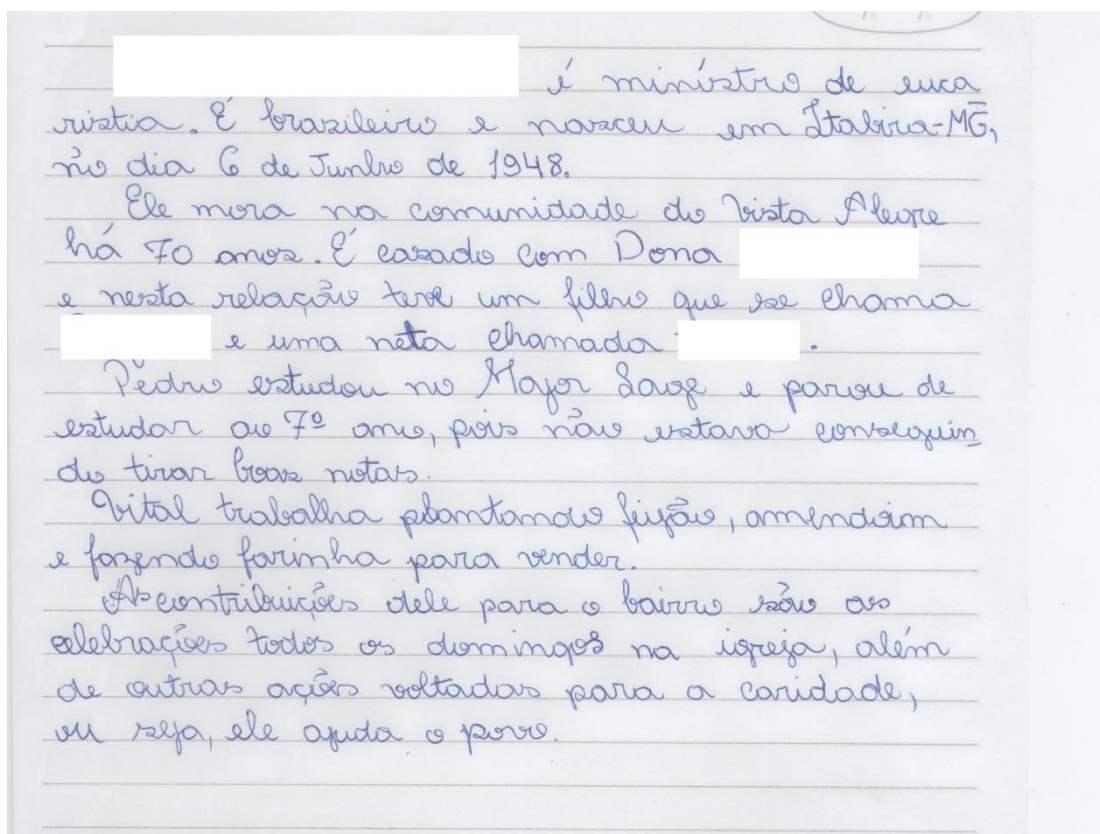 é ministro de euca
ristia. É brasileiro e nasceu em Itabira-MG,
no dia 6 de Junho de 1948.
Ele mora na comunidade do Vista Alegre
há 70 anos. É casado com Dona
e nesta relação teve um filho que se chama
e uma neta chamada .
Pedro estudou no Major Lage e parou de
estudar ao 7º ano, pois não estava conseguin
do tirar boas notas.
Vital trabalha plantando feijão, amendoim
e fazendo farinha para vender.
As contribuições dele para o bairro são as
celebrações todos os domingos na igreja, além
de outras ações voltadas para a caridade,
ou seja, ele ajuda o povo.